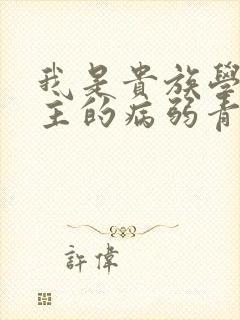 我是貴族學
主的病弱青
許偉